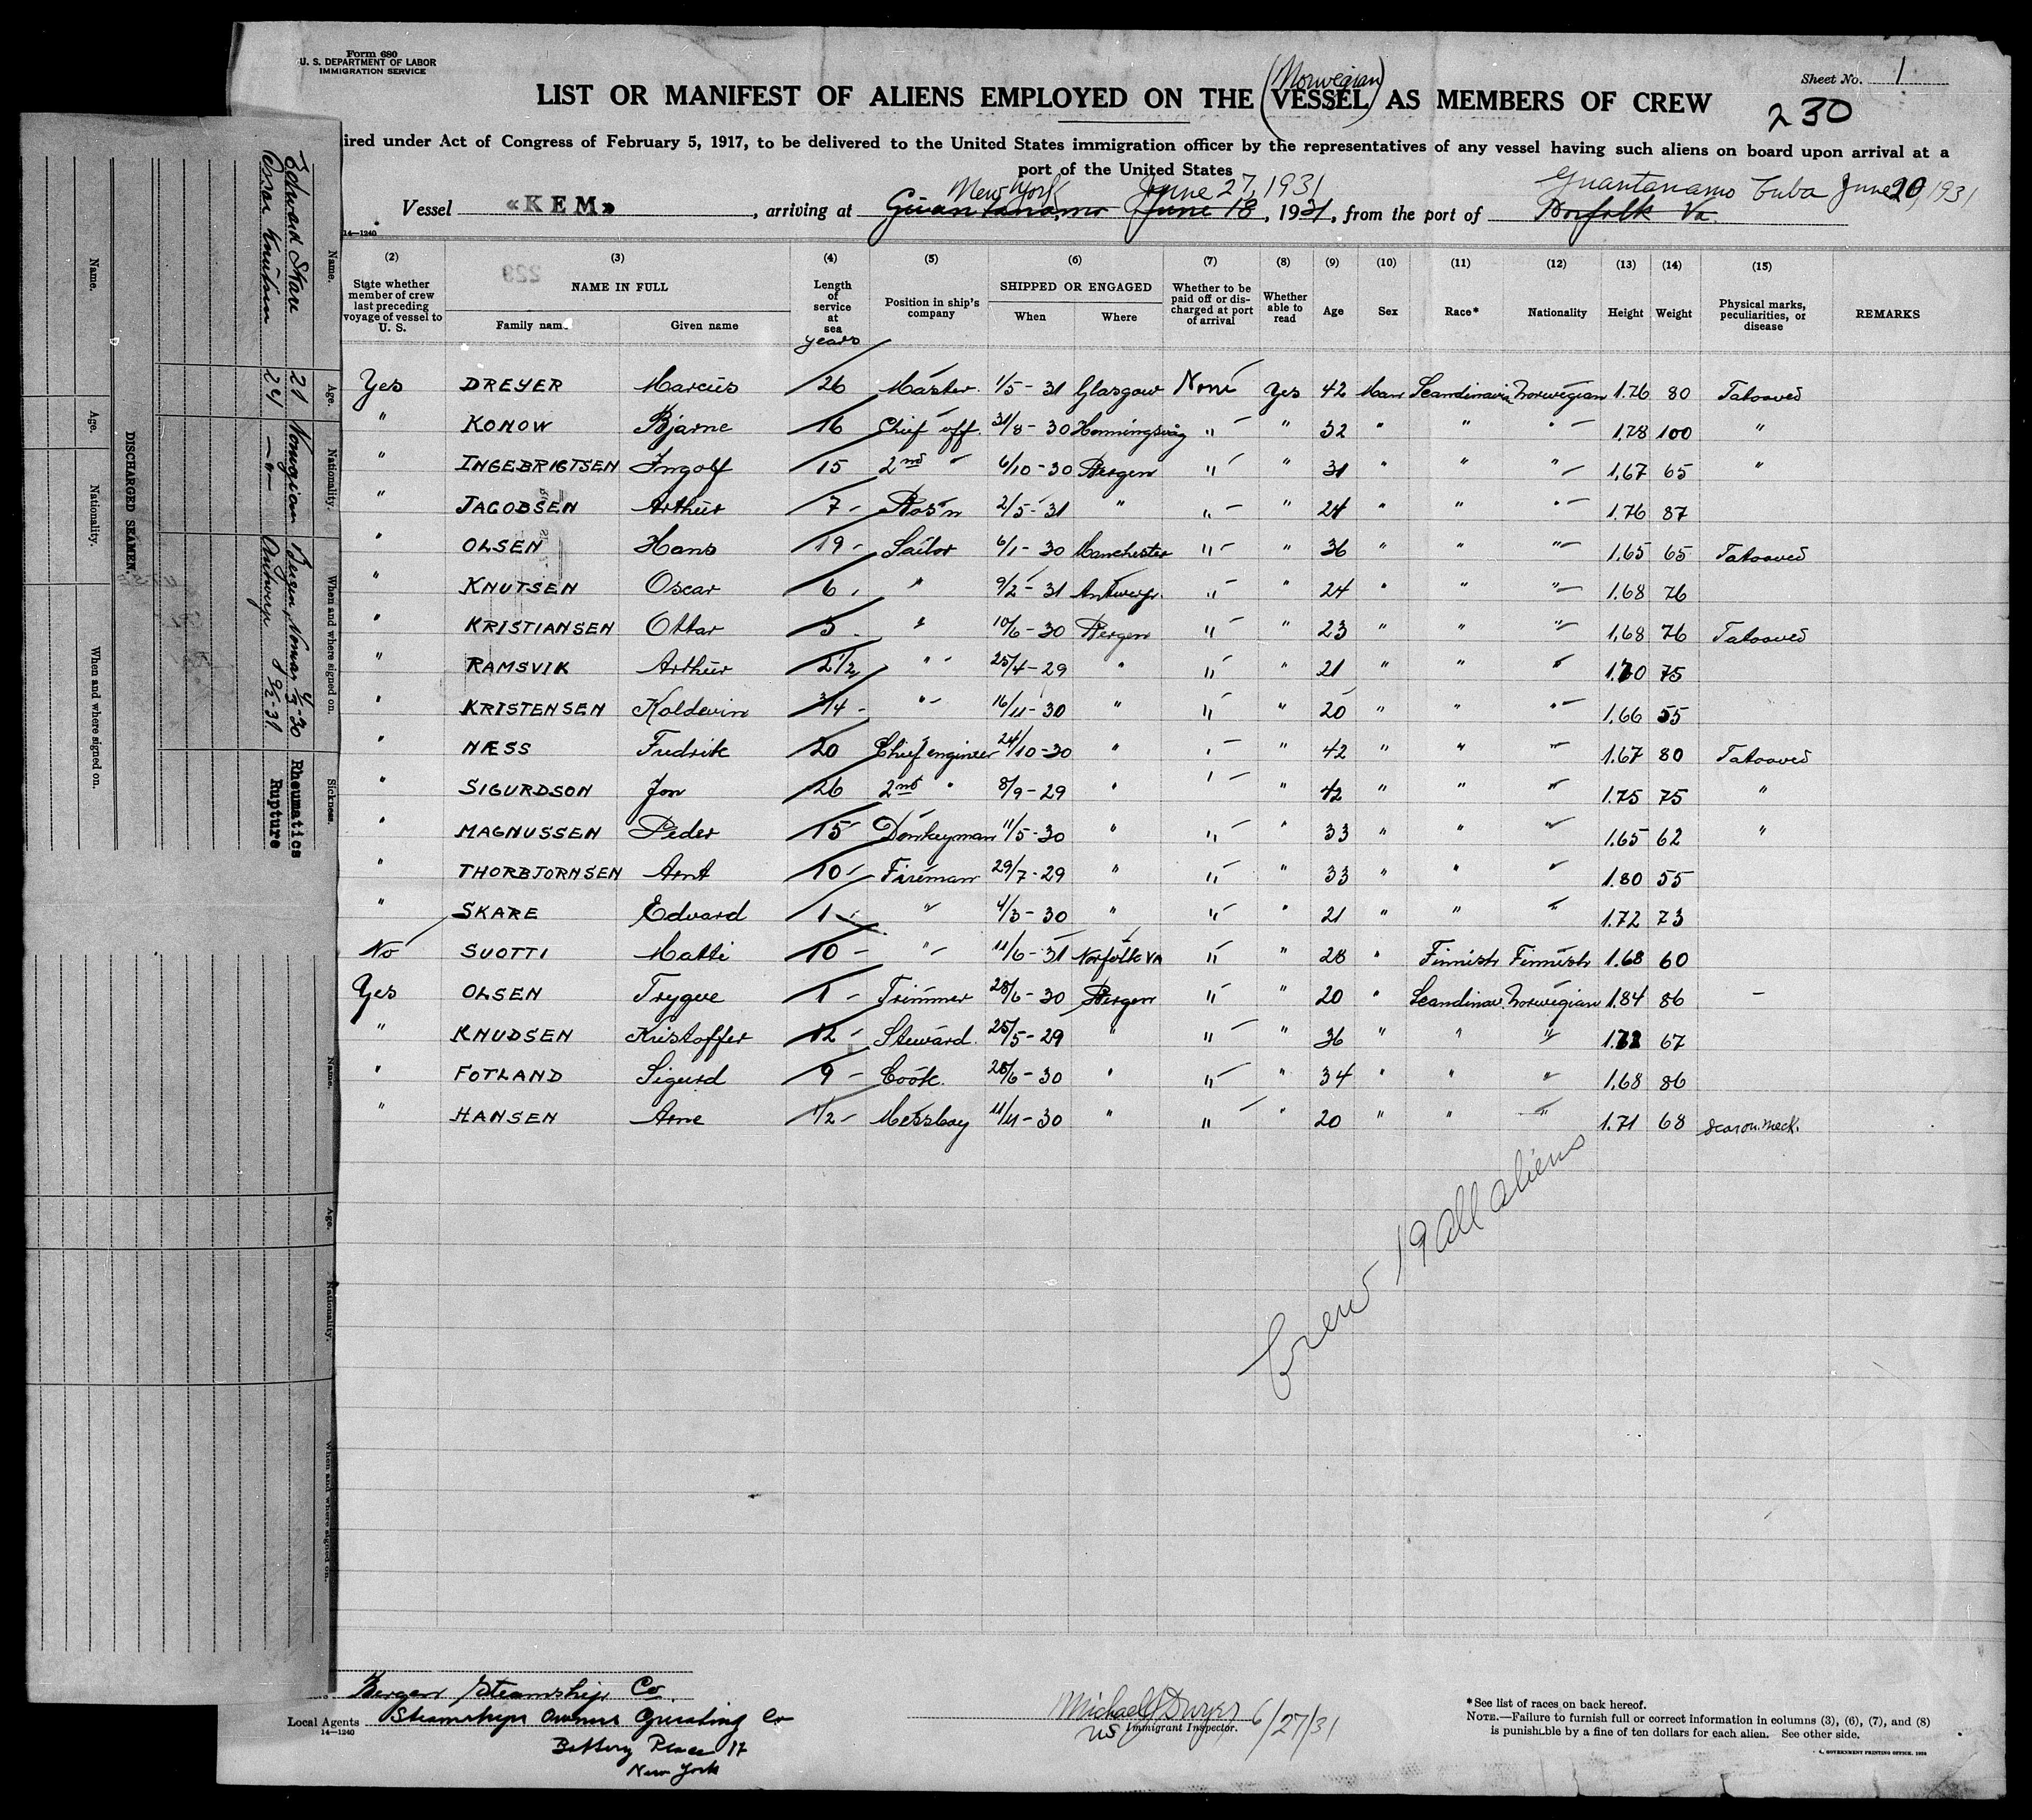 Form 680
U. S. DEPARTMENT OF LABOR
IMMIGRATION SERVICE
Sheet No. 1
LIST OR MANIFEST OF ALIENS EMPLOYED ON THE (Norwegian) VESSEL AS MEMBERS OF CREW
230
ired under Act of Congress of February 5, 1917, to be delivered to the United States immigration officer by the representatives of any vessel having such aliens on board upon arrival at a
port of the United States
New York June 27, 1931 Guantanamo Cuba June 20, 1931
Vessel «KEM», arriving at Guantanamo June 18, 1931, from the port of Norfolk Va.
14—1240
(2) (3) (4) (5) (6) (7) (8) (9) (10) (11) (12) (13) (14) (15)
State whether member of crew last preceding voyage of vessel to U. S. | NAME IN FULL | Family name | Given name | Length of service at sea years | Position in ship's company | SHIPPED OR ENGAGED | When | Where | Whether to be paid off or discharged at port of arrival | Whether able to read | Age | Sex | Race* | Nationality | Height | Weight | Physical marks, peculiarities, or disease | REMARKS
229
Yes DREYER Marcus 26 Master 1/5-31 Glasgow None Yes 42 Man Scandinavia Norwegian 1.76 80 Tatooved
" KONOW Bjarne 16 Chief off. 31/8-30 Honningsvåg " " 32 " " " 1.78 100 "
" INGEBRIGTSEN Ingolf 15 2nd " 6/10-30 Bergen " " 31 " " " 1.67 65 "
" JACOBSEN Arthur 7 Bos'n 2/5-31 " " " 24 " " " 1.76 87
" OLSEN Hans 19 Sailor 6/1-30 Manchester " " 36 " " " 1.65 65 Tatooved
" KNUTSEN Oscar 6 " 9/2-31 Antwerp. " " 24 " " " 1.68 76
" KRISTIANSEN Ottar 5 " 10/6-30 Bergen " " 23 " " " 1.68 76 Tatooved
" RAMSVIK Arthur 2 1/2 " 25/4-29 " " " 21 " " " 1.70 75
" KRISTENSEN Koldevin 3/4 " 16/11-30 " " " 20 " " " 1.66 55
" NÆSS Fredrik 20 Chief engineer 24/10-30 " " 42 " " " 1.67 80 Tatooved
" SIGURDSON Jon 26 2nd " 8/9-29 " " " 42 " " " 1.75 75 "
" MAGNUSSEN Peder 15 Donkeyman 11/5-30 " " " 33 " " " 1.65 62 "
" THORBJORNSEN Arnt 10 Fireman 29/7-29 " " " 33 " " " 1.80 55
" SKARE Edvard 1 " 4/3-30 " " " 21 " " " 1.72 73
No SUOTTI Matti 10 " 11/6-31 Norfolk Va " " 28 " Finnish Finnish 1.68 60
Yes OLSEN Trygve 1 Trimmer 28/6-30 Bergen " " 20 " Scandinav. Norwegian 1.84 86 —
" KNUDSEN Kristoffer 12 Steward. 25/5-29 " " " 36 " " " 67
" FOTLAND Sigurd 9 Cook. 28/6-30 " " " 34 " " " 1.68 86
" HANSEN Arne 1/2 Messboy 11/11-30 " " " 20 " " " 1.71 68 scar on neck.
Crew 19 all aliens
Bergen Steamship Co.
Local Agents Steamships Owners Operating Co
14—1240
Battery Place 17
New York
Michael J Dwyer 6/27/31
US Immigrant Inspector.
*See list of races on back hereof.
NOTE.—Failure to furnish full or correct information in columns (3), (6), (7), and (8)
is punishable by a fine of ten dollars for each alien. See other side.
GOVERNMENT PRINTING OFFICE
DISCHARGED SEAMEN.
Name. Age. Nationality. When and where signed on. Sickness.
Edward Skare 21 Norwegian Bergen, Norway 4/3-30 Rheumatics
Oscar Knutsen 24 —"— Antwerp 9/2-31 Rupture
Name. Age. Nationality. When and where signed on.
Name. Age. Nationality. When and where signed on.